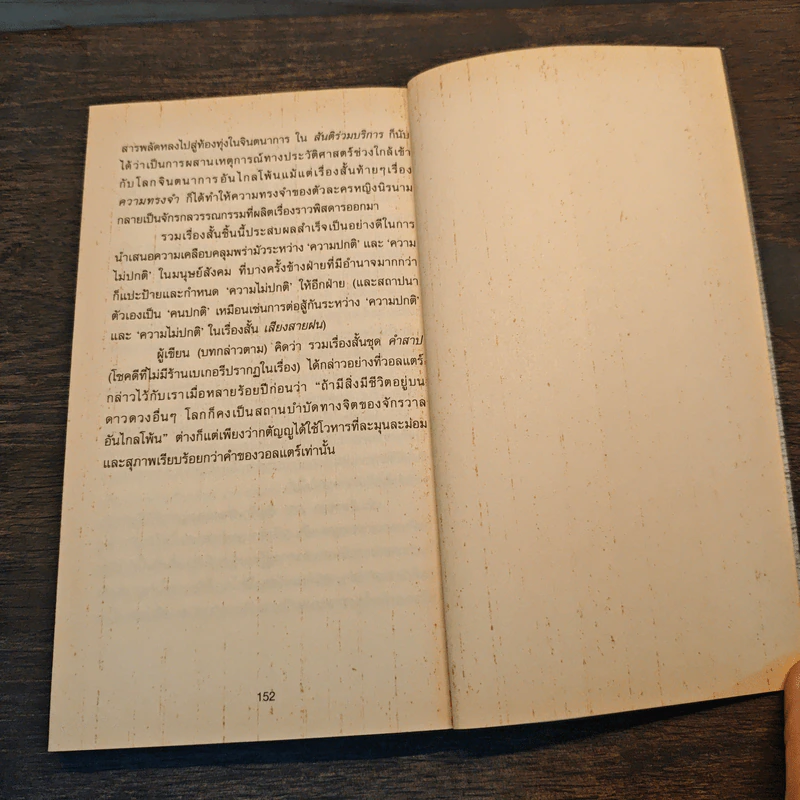 สารพลัดหลงไปสู่ท้องทุ่งในจินตนาการ ใน สันติร่วมบริการ ก็นับ
ได้ว่าเป็นการผสานเหตุการณ์ทางประวัติศาสตร์ช่วงใกล้เข้า
กับโลกจินตนาการอันไกลโพ้นแม้แต่เรื่องสั้นท้ายๆเรื่อง
ความทรงจำ ก็ได้ทำให้ความทรงจำของตัวละครหญิงนิรนาม
กลายเป็นจักรกลวรรณกรรมที่ผลิตเรื่องราวพิสดารออกมา
รวมเรื่องสั้นชิ้นนี้ประสบผลสำเร็จเป็นอย่างดีในการ
นำเสนอความเคลือบคลุมพร่ามัวระหว่าง ‘ความปกติ’ และ ‘ความ
ไม่ปกติ’ ในมนุษย์สังคม ที่บางครั้งข้างฝ่ายที่มีอำนาจมากกว่า
ก็แปะป้ายและกำหนด ‘ความไม่ปกติ’ ให้อีกฝ่าย (และสถาปนา
ตัวเองเป็น ‘คนปกติ’ เหมือนเช่นการต่อสู้กันระหว่าง ‘ความปกติ’
และ ‘ความไม่ปกติ’ ในเรื่องสั้น เสียงสายฝน)
ผู้เขียน (บทกล่าวตาม) คิดว่า รวมเรื่องสั้นชุด คำสาป
(โชคดีที่ไม่มีร้านเบเกอรีปรากฏในเรื่อง) ได้กล่าวอย่างที่วอลแตร์
กล่าวไว้กับเราเมื่อหลายร้อยปีก่อนว่า “ถ้ามีสิ่งมีชีวิตอยู่บน
ดาวดวงอื่นๆ โลกก็คงเป็นสถานบำบัดทางจิตของจักรวาล
อันไกลโพ้น” ต่างก็แต่เพียงว่ากตัญญูได้ใช้โวหารที่ละมุนละม่อม
และสุภาพเรียบร้อยกว่าคำของวอลแตร์เท่านั้น
152